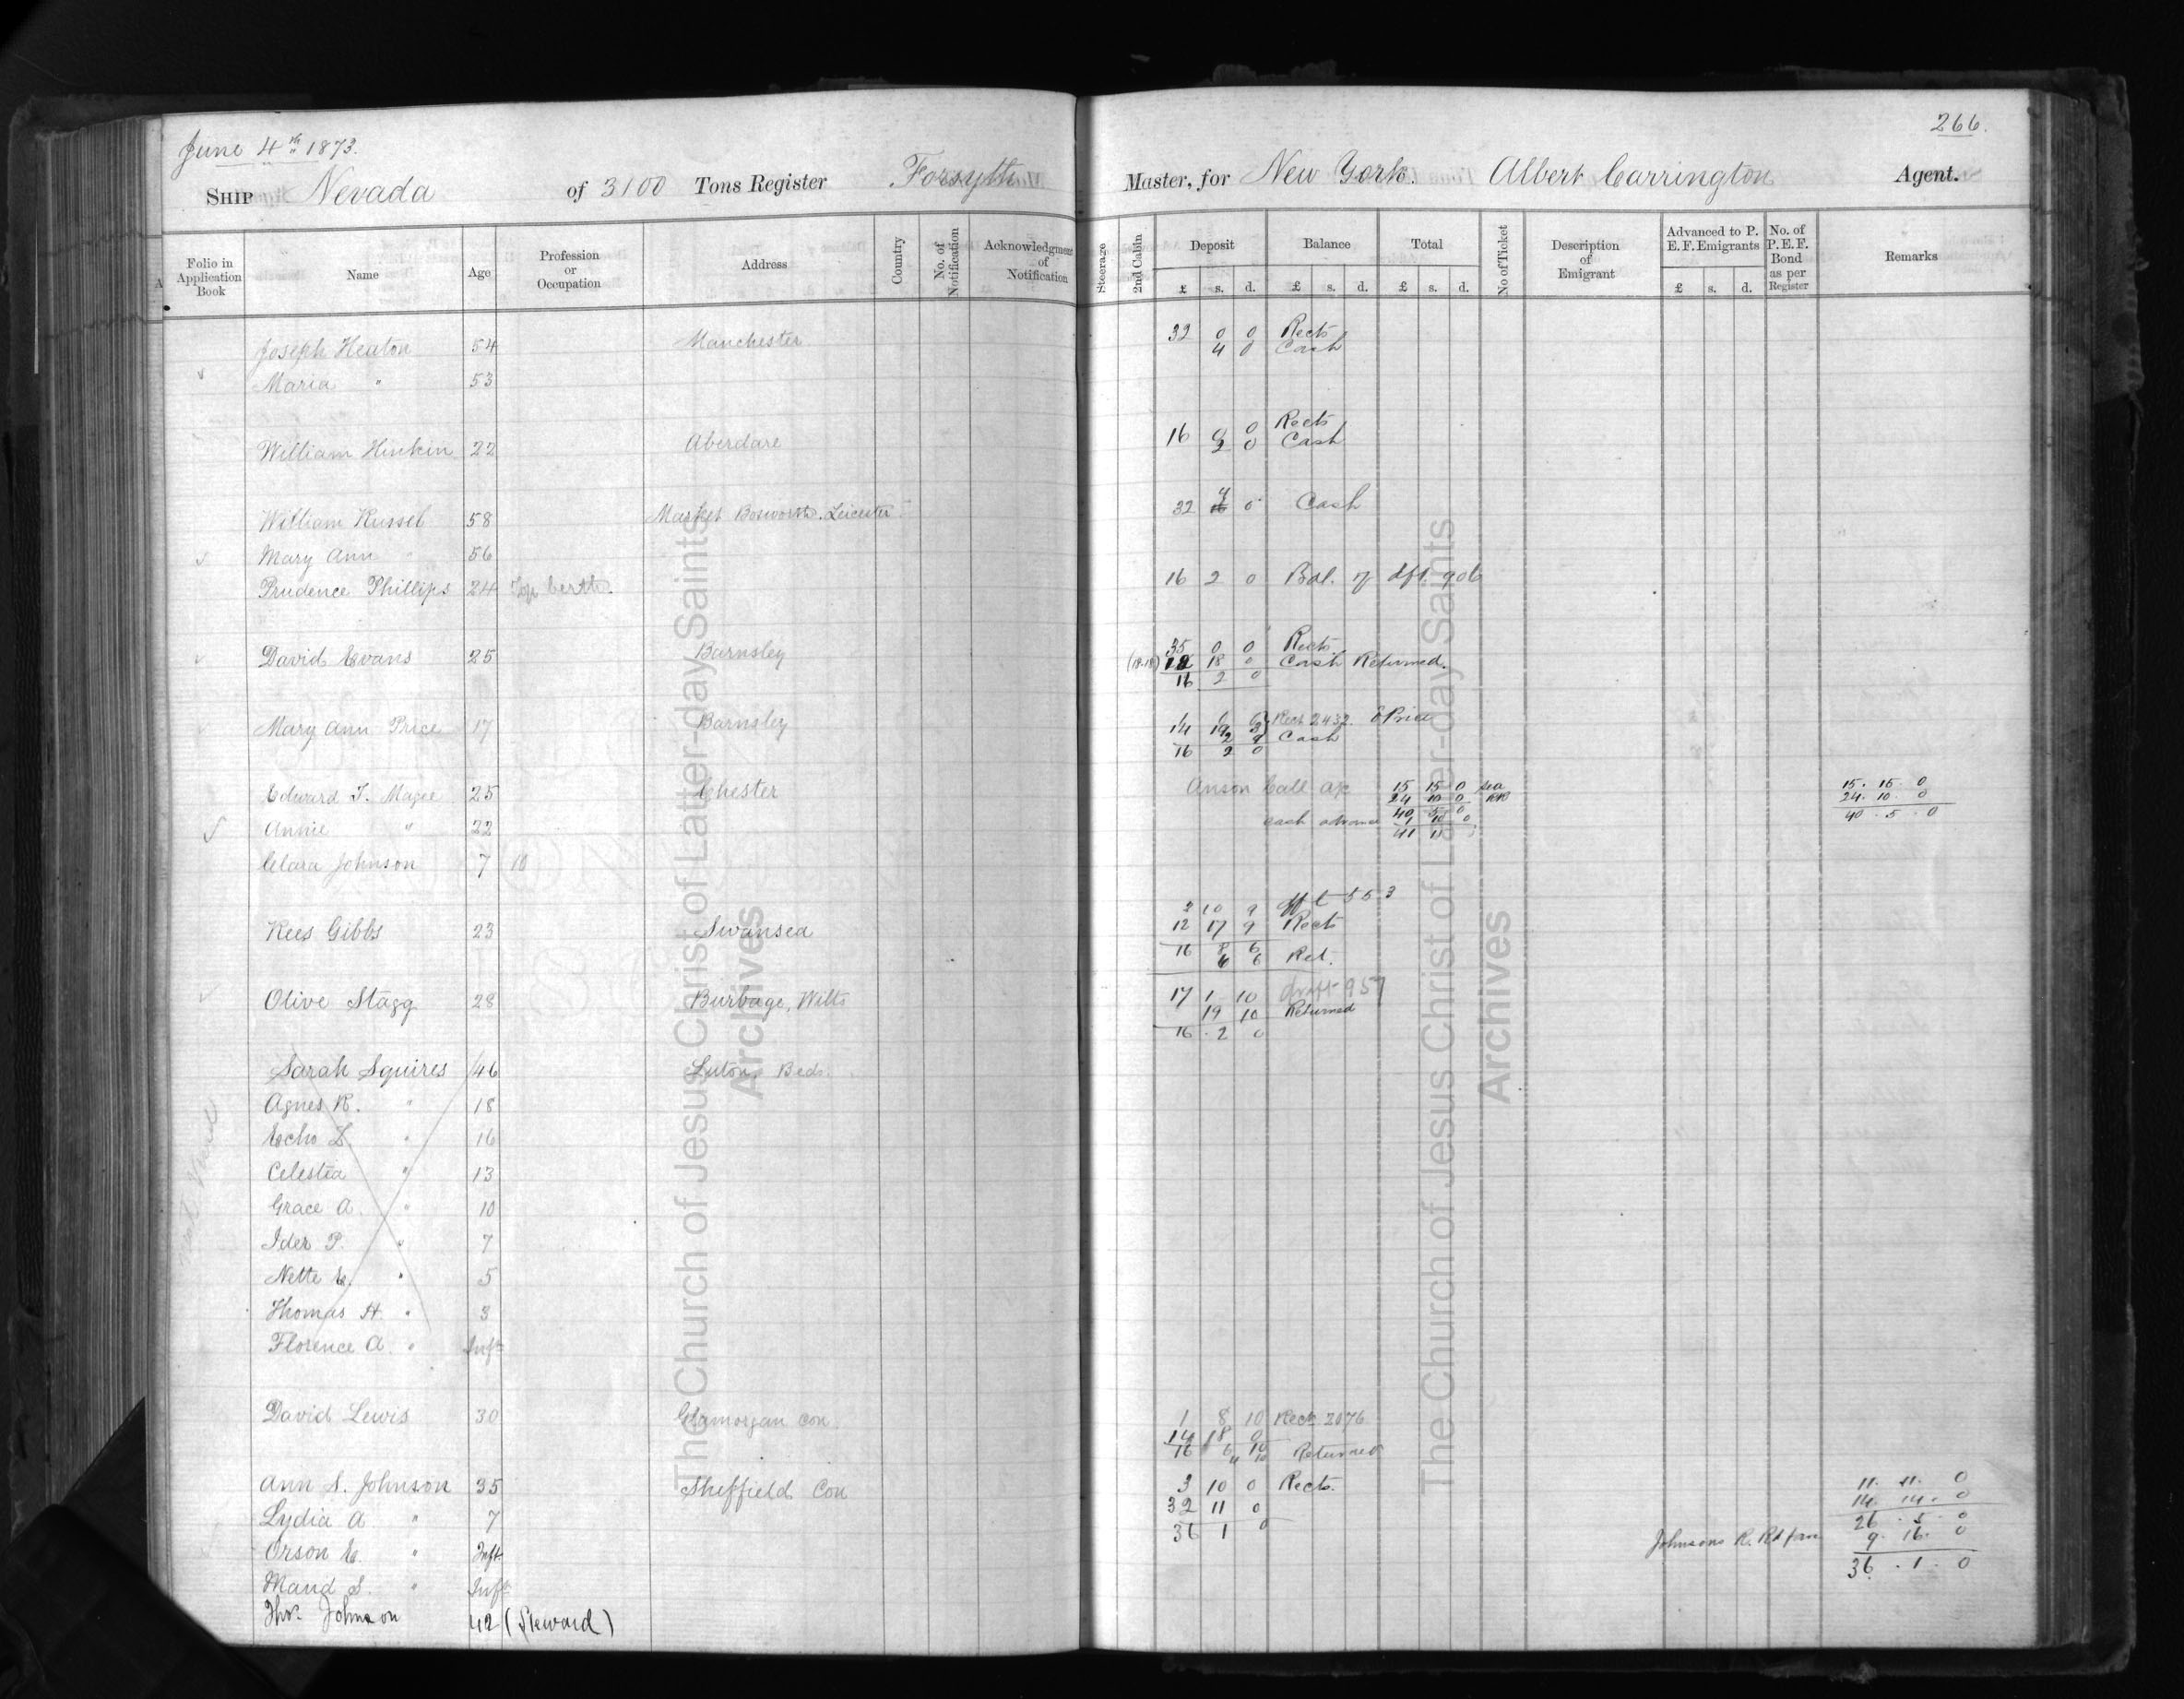 June 4th 1873.
266.
SHIP Nevada of 3100 Tons Register Forsyth Master, for New York. Albert Carrington Agent.
Folio in Application Book
Name
Age
Profession or Occupation
Address
Country
No. of Notification
Acknowledgment of Notification
Steerage
2nd Cabin
Deposit £ s. d.
Balance £ s. d.
Total £ s. d.
No of Ticket
Description of Emigrant
Advanced to P. E. F. Emigrants £ s. d.
No. of P. E. F. Bond as per Register
Remarks
Joseph Heaton 54 Manchester 32 0 0 Rects
4 0 Cash
Maria " 53
Rects
William Hinkin 22 Aberdare 16 0 0
2 0 Cash
William Russel 58 Market Bosworth, Leicester 32 4 0 Cash
Mary Ann " 56
Prudence Phillips 24 Top berth. 16 2 0 Bal. of dft. 906
35 0 0 Rects.
David Evans 25 Barnsley (18-18) 18 18 0 Cash Returned.
16 2 0
Mary Ann Price 17 Barnsley Rect 2432. E Price
14 19 3
2 9 Cash
16 2 0
Edward T. Magee 25 Chester Anson Call a/c 15 15 0 sea 15. 15. 0
24 10 0 RR 24. 10. 0
40 5 0 40. 5. 0
Annie " 22 cash advance 1 10 0
41 15
Clara Johnson 7 10
2 10 9 553
Rees Gibbs 23 Swansea 12 17 9 Rects
16 8 6
6 6 Ret.
Olive Stagg 28 Burbage, Wilts 17 1 10 draft 957
19 10 Returned
16 2 0
Sarah Squires 46 Luton, Beds.
Agnes R. " 18
Echo L. " 16
Celestia " 13
Grace A. " 10
Ider P. " 7
Nette E. " 5
Thomas H. " 3
Florence A. " Inft
David Lewis 30 Glamorgan Con. 1 8 10 Rect 2076
14 18 0
16 6 10
4 10 Returned
Ann S. Johnson 35 Sheffield Con 3 10 0 Rects. 11. 11. 0
Lydia A " 7 32 11 0 14. 14. 0
36 1 0 26. 5. 0
Orson E. " Inft. Johnsons R. Rd fare 9. 16. 0
36. 1. 0
Maud S. " Inft
Thos. Johnson 42 (Steward)
The Church of Jesus Christ of Latter-day Saints
Archives
The Church of Jesus Christ of Latter-day Saints
Archives